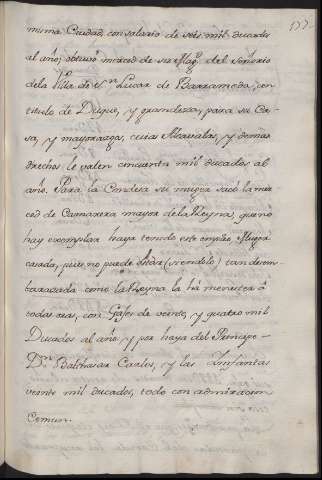 misma Ciudad, con salario de seis mil ducados
al año; obtuvo merced de su Mag.d del señorio
dela Villa de S.n Lucar de Barrameda, con
titulo de Duque, y grandeza, para su Ca-
sa, y mayorazgo, cuias Alcavalas, y demas
derechos le valen cincuenta mil ducados al
año. Para la Condesa su muger sacó la mer
ced de Camarera mayor dela Reyna, que no
hay exemplar haya tenido este empleo, Muger
casada, pues no puede estar (siendolo) tan desem-
barazada como la Reyna la há menester à
todas oras, con Gajes de veinte, y quatro mil
Ducados al año, y por haya del Principe
D.n Balthasar Carlos, y las Infantas
veinte mil ducados, todo con admiracion
Comun.